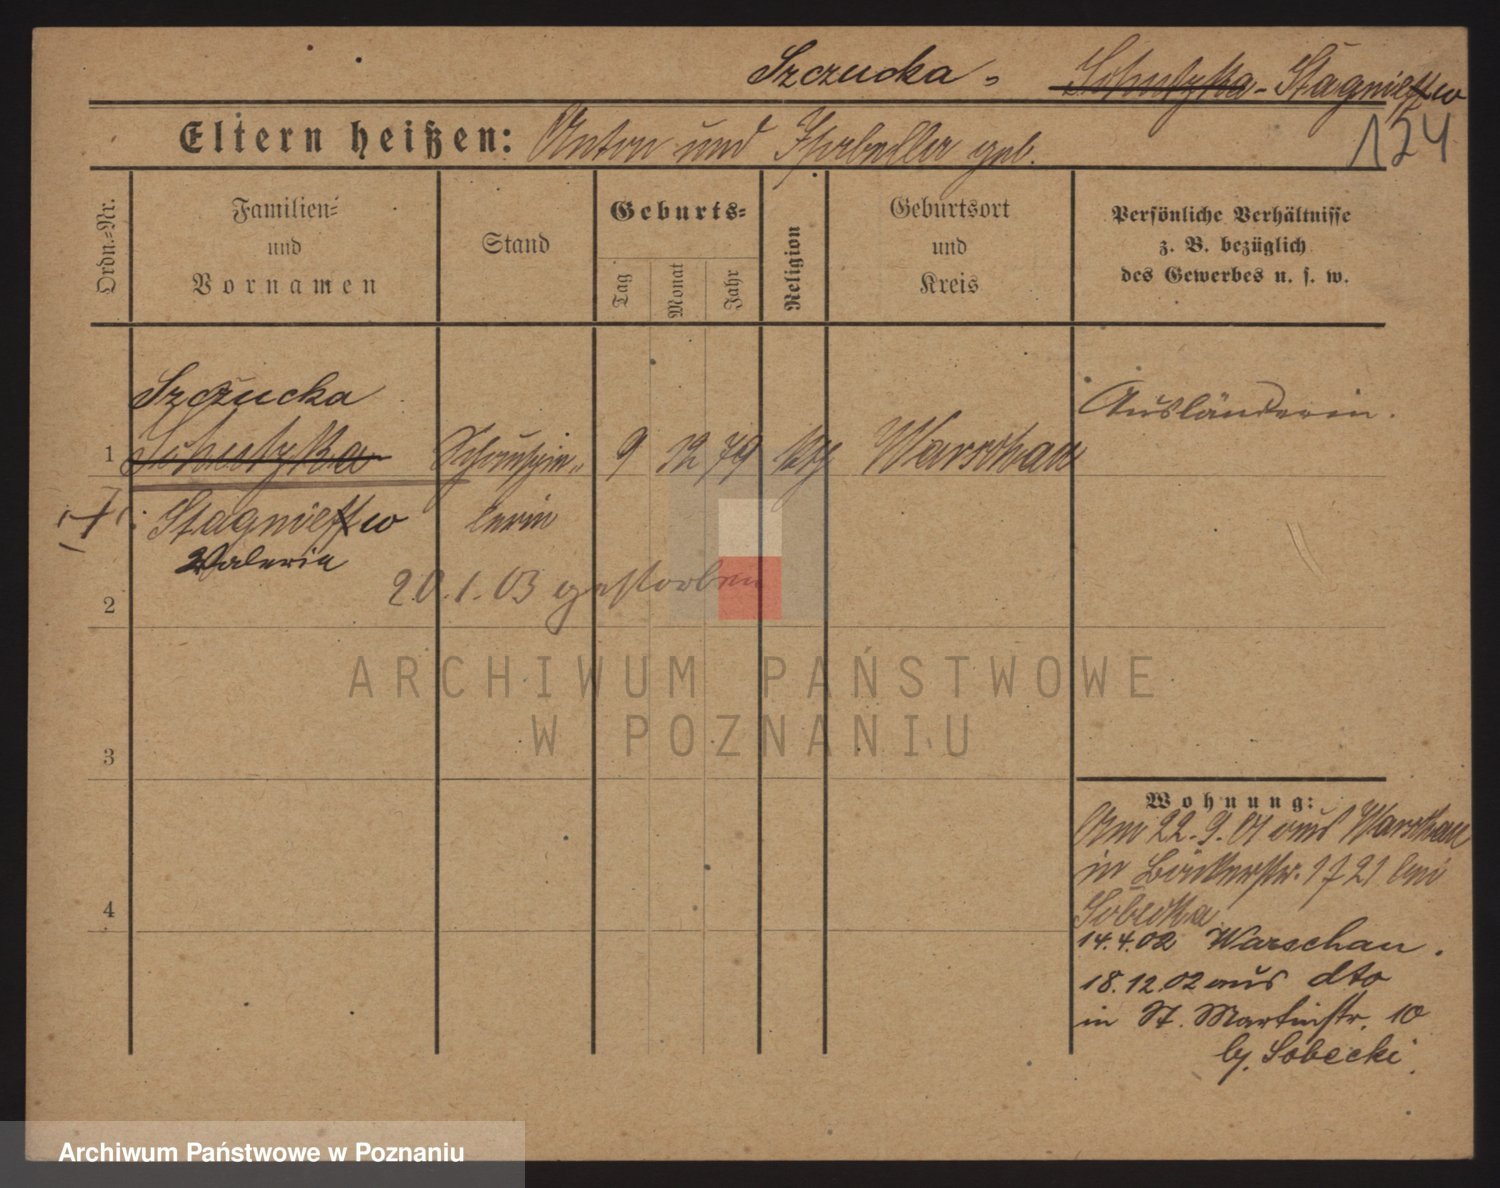 Szczucka, Schutzka - Stagnieffw
124
Eltern heißen: Anton und Isabella geb.
Ordn.-Nr.
Familien-
und
Vornamen
Stand
Geburts-
Tag
Monat
Jahr
Religion
Geburtsort
und
Kreis
Persönliche Verhältnisse
z. B. bezüglich
des Gewerbes u. s. w.
Szczucka
Ausländerin.
1 Schutzka Schauspie- 9 12 79 kth Warschau
Stagnieffw lerin
Valerie
20.1.03 gestorben
2
ARCHIWUM PAŃSTWOWE
W POZNANIU
3
Wohnung:
Am 22.9.01 aus Warschau
in Bäckerstr. 17 21 bei
Sobecka
4
14.4.02 Warschau.
18.12.02 aus dto
in St. Martinstr. 10
by. Sobecki.
Archiwum Państwowe w Poznaniu